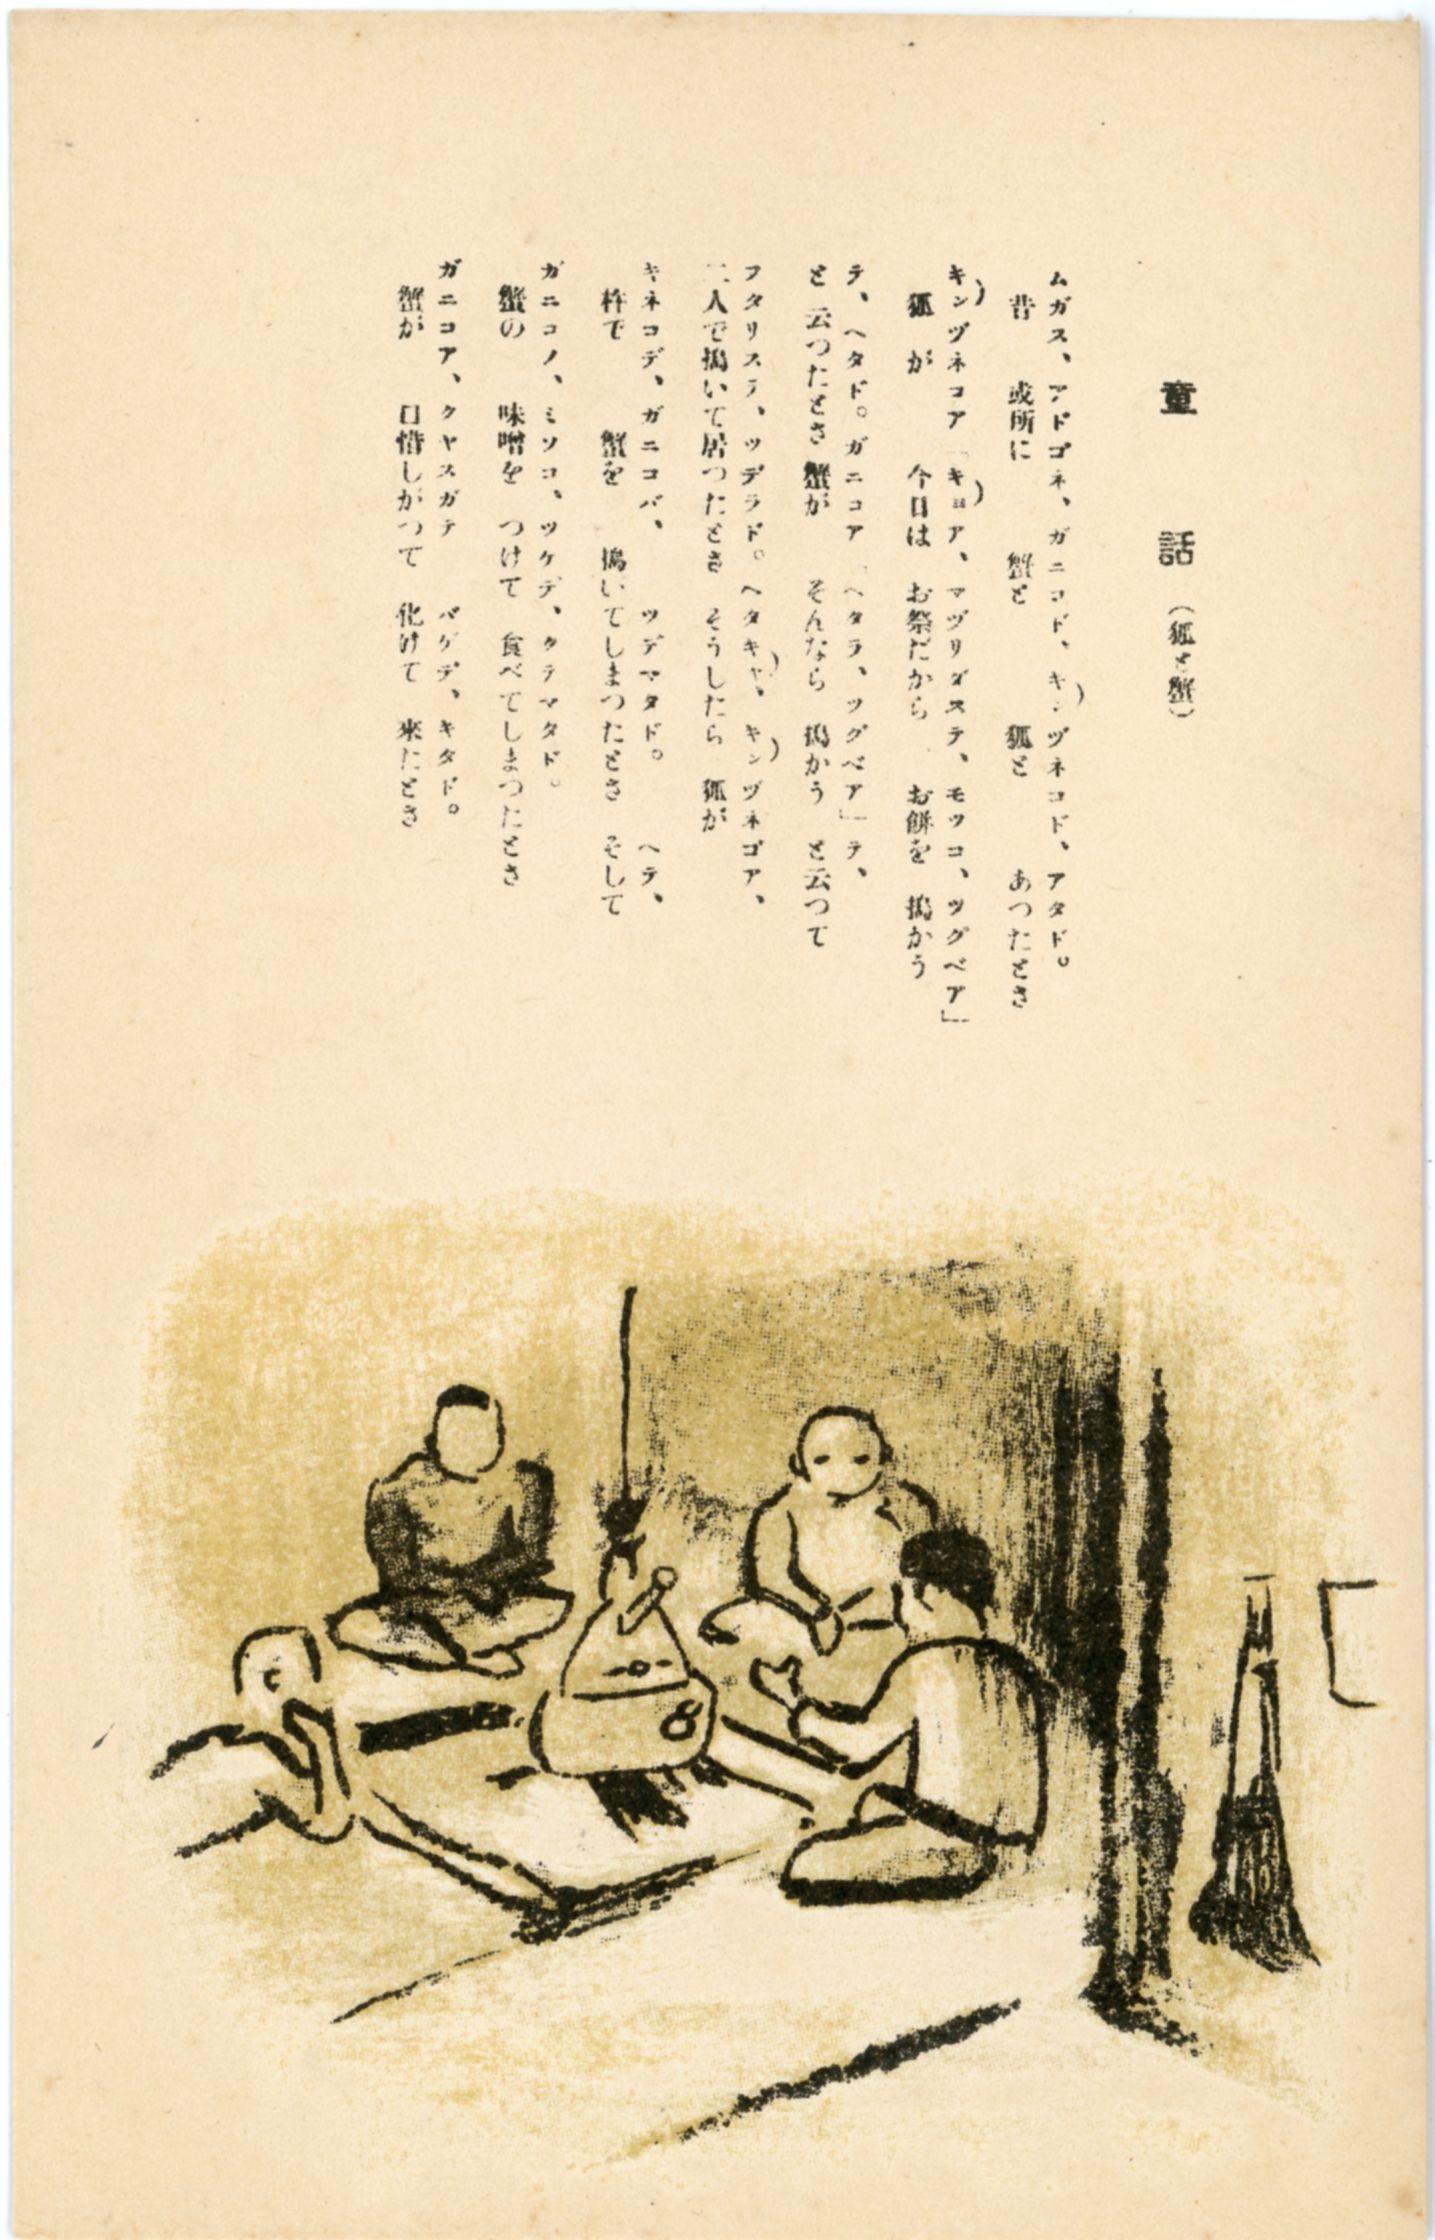 童話（狐と蟹）
ムガス、アドゴネ、ガニコド、キンヅネコド、アタド。
昔 或所に 蟹と 狐と あつたとさ
キンヅネコア「キョア、マヅリダステ、モツコ、ツグベア」
狐が 今日は お祭だから、お餅を 搗かう
テ、ヘタド。ガニコア「ヘタラ、ツグベア」テ、
と云つたとさ 蟹が そんなら 搗かう と云つて
フタリステ、ツデラド。ヘタキャ、キンヅネゴア、
二人で搗いて居つたとさ そうしたら 狐が
キネコデ、ガニコバ、ツデマタド。ヘテ、
杵で 蟹を 搗いてしまつたとさ そして
ガニコノ、ミソコ、ツケデ、クテマタド。
蟹の 味噌を つけて 食べてしまつたとさ
ガニコア、クヤスガテ バゲデ、キタド。
蟹が 口惜しがつて 化けて 來たとさ